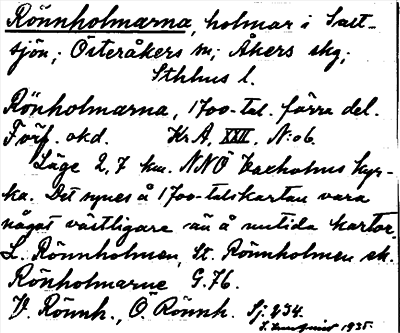 Rönnholmarna, holmar i Salt-
sjön; Österåkers sn; Åkers skg;
Sthlms l.
Rönholmarna, 1700-tal. förra del.
Förf. okd. Kr. A. XXII, N:o 6.
Läge 2,7 km. NNÖ Vaxholms kyr-
ka. Det synes å 1700-talskartan vara
något västligare än å nutida kartor.
L. Rönnholmen, St. Rönnholmen ek.
Rönholmarne G. 76.
V. Rönnh., Ö. Rönnh. Sj. 234.
1935